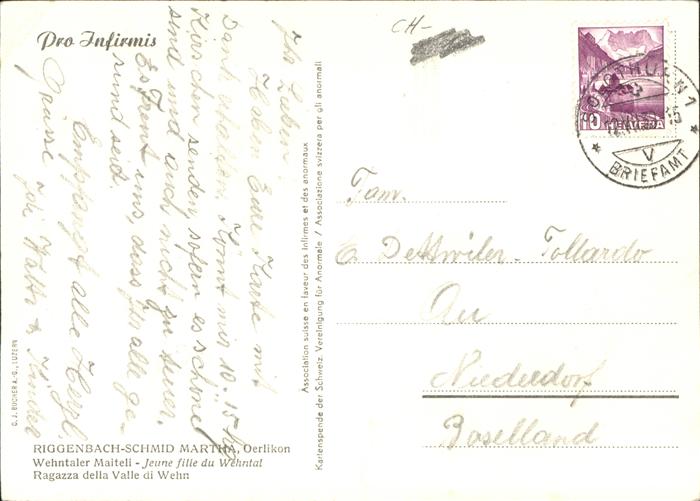 Pro Infirmis
CH-
Ihr Lieben!
Haben Eure Karte mit
Dank erhalten. Könnt mir 10-15 kg
Kirschen senden, sofern es schöne
sind und auch nicht zu teuer.
Es freut uns, dass Ihr alle ge-
sund seid.
Empfangt alle herzl.
Grüsse
& Kinder
Association suisse en faveur des infirmes et des anormaux
Kartenspende der Schweiz. Vereinigung für Anormale / Associazione svizzera per gli anormali
C. J. BUCHER A.-G., LUZERN
RIGGENBACH-SCHMID MARTHA, Oerlikon
Wehntaler Maiteli - Jeune fille du Wehntal
Ragazza della Valle di Wehn
10 HELVETIA
V
BRIEFAMT
Fam.
E. Dettwiler-Tollardo
Au
Niederdorf
Baselland